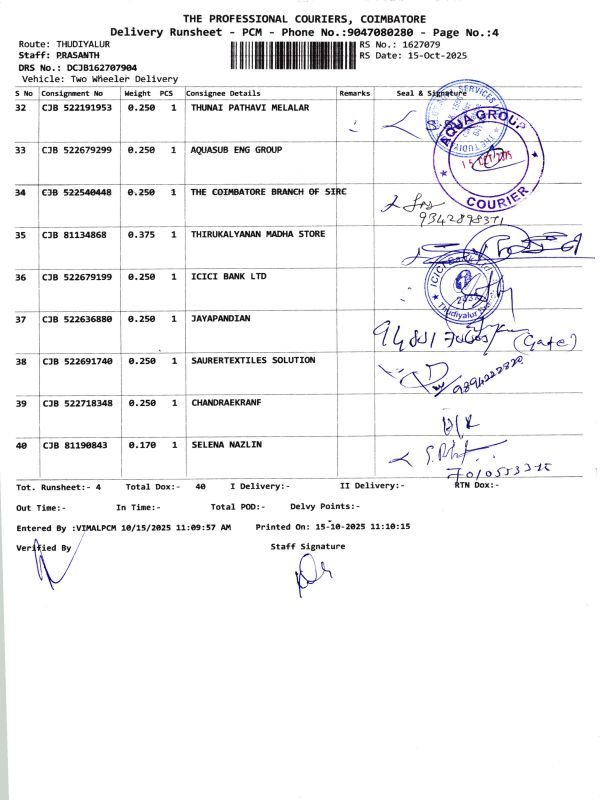 THE PROFESSIONAL COURIERS, COIMBATORE
Delivery Runsheet - PCM - Phone No.:9047080280 - Page No.:4
Route: THUDIYALUR RS No.: 1627079
Staff: PRASANTH RS Date: 15-Oct-2025
DRS No.: DCJB162707904
Vehicle: Two Wheeler Delivery
S No Consignment No Weight PCS Consignee Details Remarks Seal & Signature
32 CJB 522191953 0.250 1 THUNAI PATHAVI MELALAR
33 CJB 522679299 0.250 1 AQUASUB ENG GROUP
AQUA GROUP
COURIER
34 CJB 522540448 0.250 1 THE COIMBATORE BRANCH OF SIRC
9342898371
35 CJB 81134868 0.375 1 THIRUKALYANAN MADHA STORE
36 CJB 522679199 0.250 1 ICICI BANK LTD
ICICI Bank Ltd
Thudiyalur
37 CJB 522636880 0.250 1 JAYAPANDIAN
(Gate)
38 CJB 522691740 0.250 1 SAURERTEXTILES SOLUTION
9894222820
39 CJB 522718348 0.250 1 CHANDRAEKRANF
D/K
40 CJB 81190843 0.170 1 SELENA NAZLIN
Tot. Runsheet:- 4 Total Dox:- 40 I Delivery:- II Delivery:- RTN Dox:-
Out Time:- In Time:- Total POD:- Delvy Points:-
Entered By :VIMALPCM 10/15/2025 11:09:57 AM Printed On: 15-10-2025 11:10:15
Verified By Staff Signature